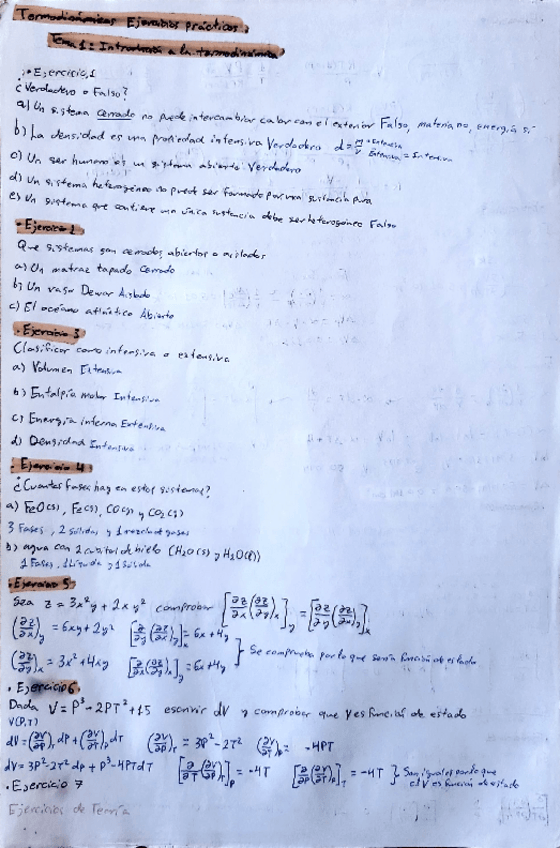 Termodinámicas Ejercicios prácticos.
Tema 1: Introducción a la termodinámica
• Ejercicio 1
¿Verdadero o Falso?
a) Un sistema cerrado no puede intercambiar calor con el exterior Falso, materia no, energía sí
b) La densidad es una propiedad intensiva Verdadero d = m/V Extensiva/Extensiva = Intensiva
c) Un ser humano es un sistema abierto Verdadero
d) Un sistema heterogéneo no puede ser formado por una sustancia pura
e) Un sistema que contiene una única sustancia debe ser heterogéneo Falso
• Ejercicio 2
Que sistemas son cerrados, abiertos o aislados
a) Un matraz tapado Cerrado
b) Un vaso Dewar Aislado
c) El océano atlántico Abierto
• Ejercicio 3
Clasificar como intensiva o extensiva
a) Volumen Extensiva
b) Entalpía molar Intensiva
c) Energía interna Extensiva
d) Densidad Intensiva
• Ejercicio 4
¿Cuantas fases hay en estos sistemas?
a) FeO(s), Fe(s), CO(g) y CO2(g)
3 Fases, 2 sólidas y 1 mezcla de gases
b) agua con 2 cubitos de hielo (H2O(s) y H2O(l))
Fases, 1 líquida y 1 sólida
• Ejercicio 5
Sea z = 3x²y + 2xy² comprobar [∂/∂x(∂z/∂y)x]y = [∂/∂y(∂z/∂x)y]x
(∂z/∂x)y = 6xy + 2y² [∂/∂y(∂z/∂x)y]x = 6x + 4y
(∂z/∂y)x = 3x² + 4xy [∂/∂x(∂z/∂y)x]y = 6x + 4y } Se comprueba por lo que sería función de estado
• Ejercicio 6
Dada V = P³ - 2PT² + 15 escribir dV y comprobar que V es función de estado
V(P,T)
dV = (∂V/∂P)T dP + (∂V/∂T)P dT (∂V/∂P)T = 3P² - 2T² (∂V/∂T)P = -4PT
dV = 3P² - 2T² dp + P³ - 4PT dT [∂/∂T(∂V/∂P)T]P = -4T [∂/∂P(∂V/∂T)P]T = -4T } Son iguales por lo que
el V es función de estado
• Ejercicio 7
Ejercicios de Teoría